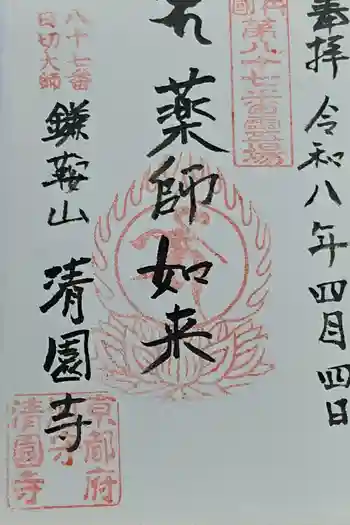 奉拝 令和八年四月四日
第八十七番霊場
薬師如来
八十七番
日切大師
鎌鞍山 清園寺
京都府
清園寺